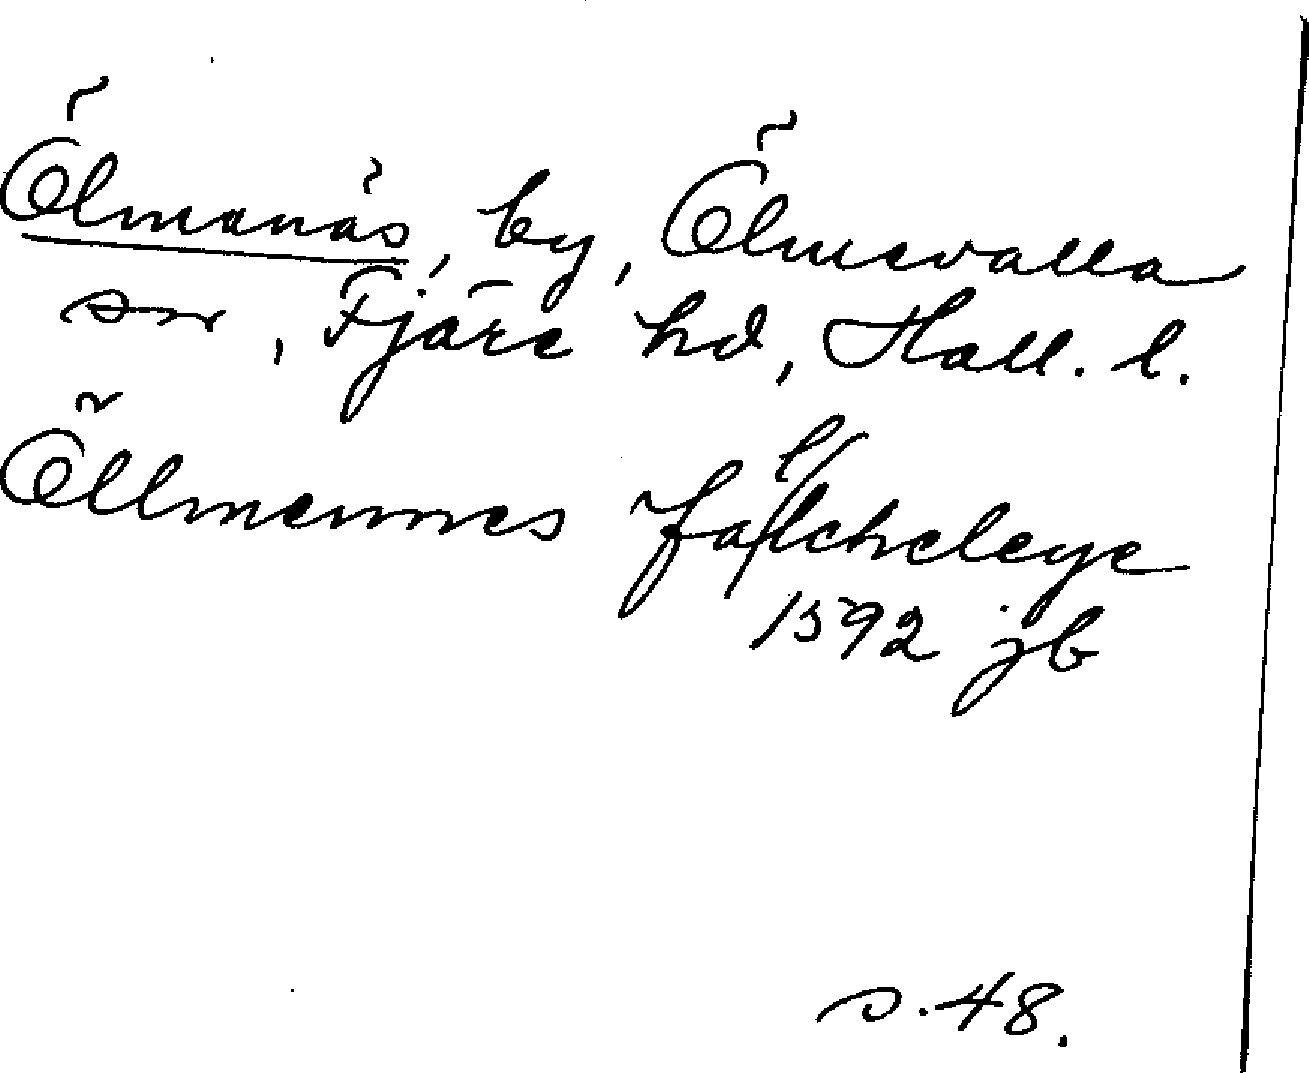 Ölmanäs, by, Ölmevalla
sn, Fjäre hd, Hall. l.
Öllmennes falcheleye
1592 jb
s. 48.